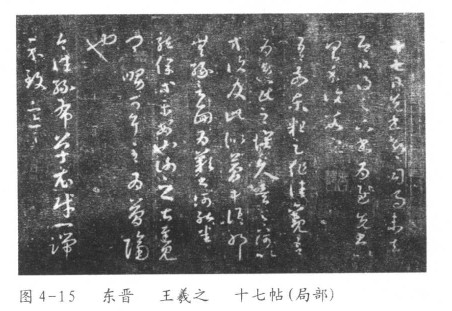 十七日先書郗司馬未去
即日得足下書為慰先書
以具示復數字
吾前東粗足作佳觀吾
為逸民之懷久矣足下何以
方復及此似夢中語耶
無緣言面為歎書何能悉
龍保等平安也謝之甚遲見
卿舅可耳至為簡隔
也
今往絲布單衣財一端
示致意
图 4-15 东晋 王羲之 十七帖(局部)